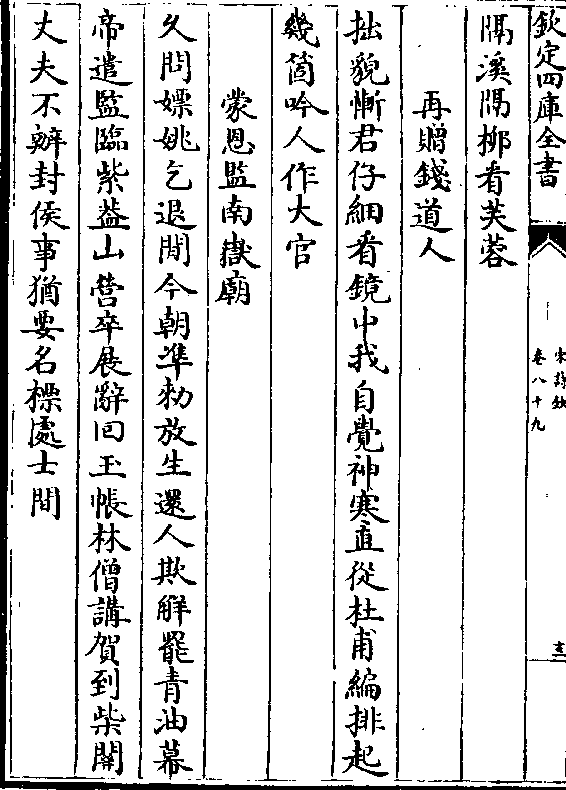 欽定四庫全書
宋詩鈔
卷八十九
隔溪隔栁看芙蓉
再贈錢道人
拙貌慚君仔細看鏡中我自覺神寒直從杜甫編排起
幾箇吟人作大官
蒙恩監南嶽廟
乆問嫖姚乞退閒今朝準勅放生還人欺觧罷青油幕
帝遣監臨紫葢山營卒展辭回玉帳林僧講賀到柴關
丈夫不辦封侯事猶要名標處士間